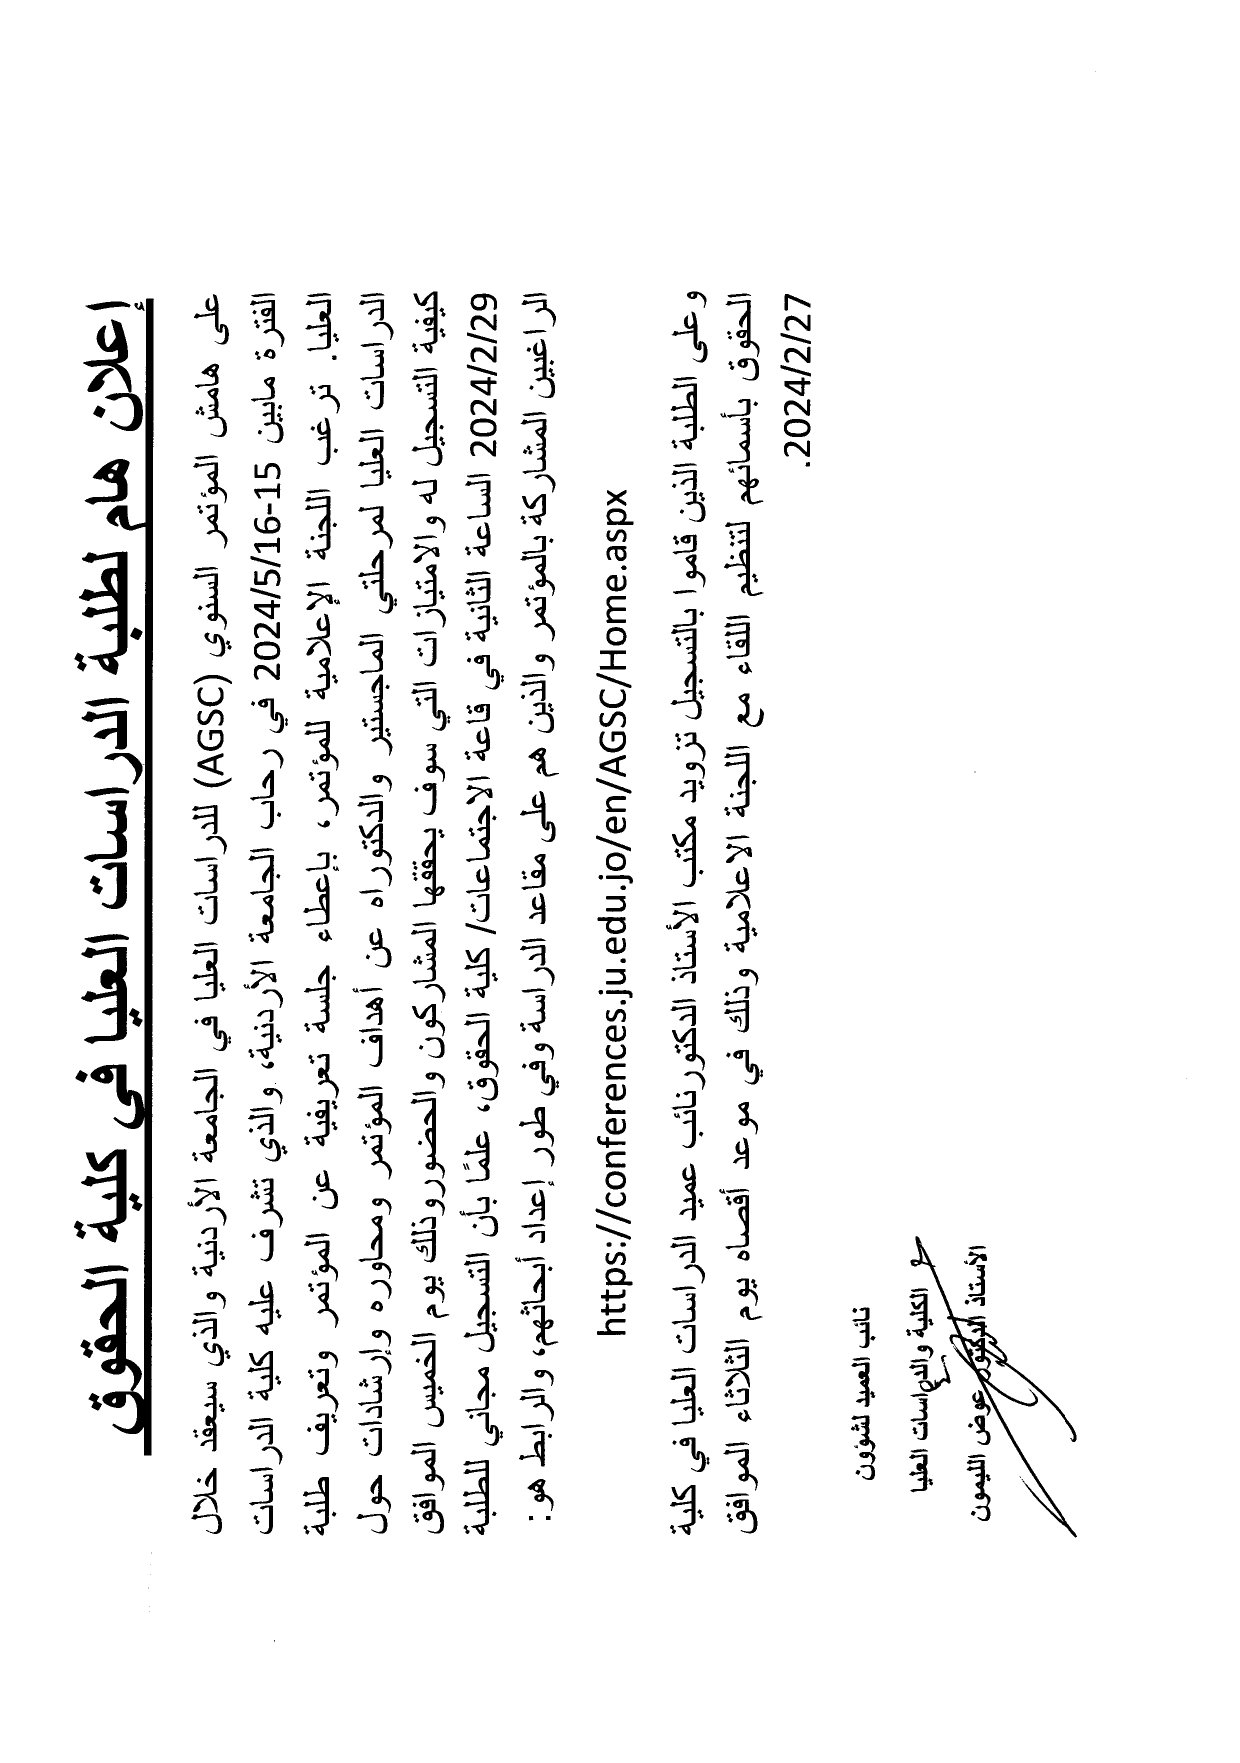 إعلان هام لطلبة الدراسات العليا في كلية الحقوق
على هامش المؤتمر السنوي (AGSC) للدراسات العليا في الجامعة الأردنية والذي سيعقد خلال
الفترة مابين 15-2024/5/16 في رحاب الجامعة الأردنية، والذي تشرف عليه كلية الدراسات
العليا. ترغب اللجنة الإعلامية للمؤتمر، بإعطاء جلسة تعريفية عن المؤتمر وتعريف طلبة
الدراسات العليا لمرحلتي الماجستير والدكتوراه عن أهداف المؤتمر ومحاوره وإرشادات حول
كيفية التسجيل له والامتيازات التي سوف يحققها المشاركون والحضوروذلك يوم الخميس الموافق
2024/2/29 الساعة الثانية في قاعة الاجتماعات/ كلية الحقوق، علمًا بأن التسجيل مجاني للطلبة
الراغبين المشاركة بالمؤتمر والذين هم على مقاعد الدراسة وفي طور إعداد أبحاثهم، والرابط هو:
https://conferences.ju.edu.jo/en/AGSC/Home.aspx
وعلى الطلبة الذين قاموا بالتسجيل تزويد مكتب الأستاذ الدكتورنائب عميد الدراسات العليا في كلية
الحقوق بأسمائهم لتنظيم اللقاء مع اللجنة الاعلامية وذلك في موعد أقصاه يوم الثلاثاء الموافق
2024/2/27.
نائب العميد لشؤون
الكلية والدراسات العليا
الأستاذ الدكتور عوض الليمون